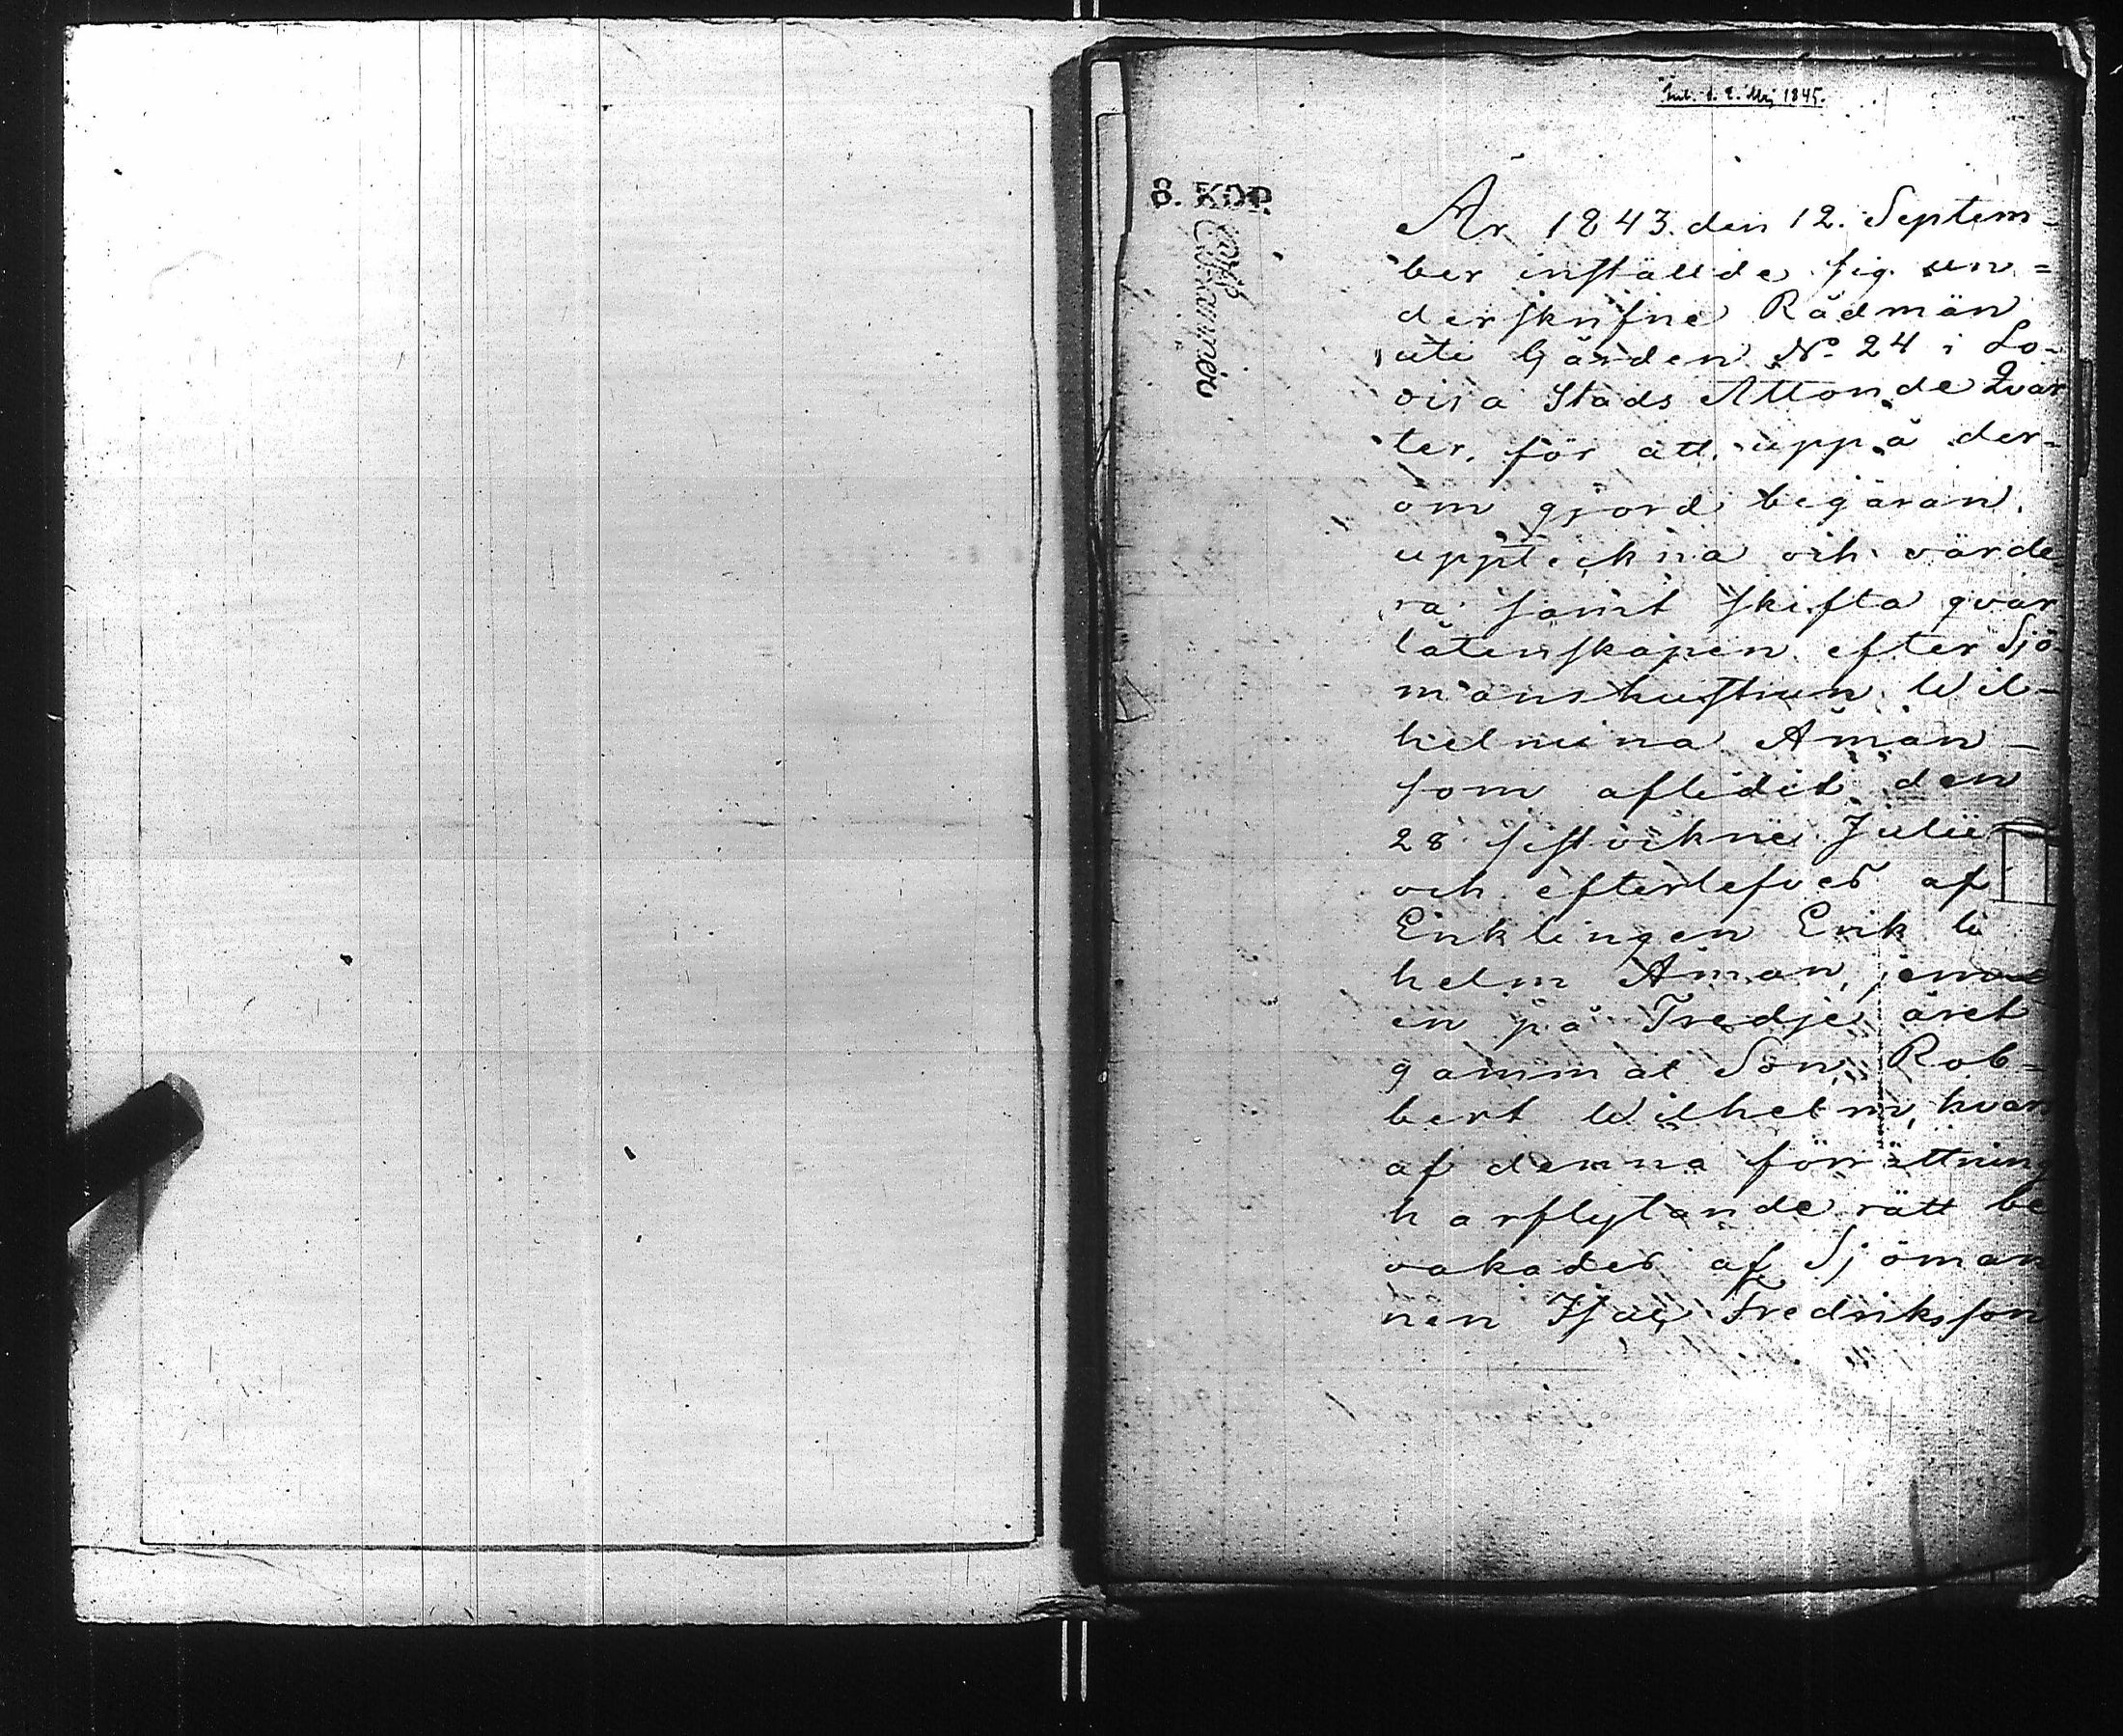 Inl. d. 2. Maj 1845.
8. KOP.
År 1843. den 12. Septem-
ber inställde sig un=
derskrifne Rådmän
uti Gården No 24 i Lo-
visa Stads Åttonde Qvar
ter, för att uppå der=
om gjord begäran
uppteckna och värde
ra samt skifta qvar
låtenskapen efter Sjö-
manshustrun Wil-
helmina Åman -
som aflidit den
28 sistvikne Julii
och efterlefves af
Enklingen Erik Wi
helm Åman, jemte
en på Tredje året
gammal Son, Rob=
bert Wilhelm, hvars
af denna förrättning
härflytande rätt be
vakades af Sjöman
nen Isac Fredriksson